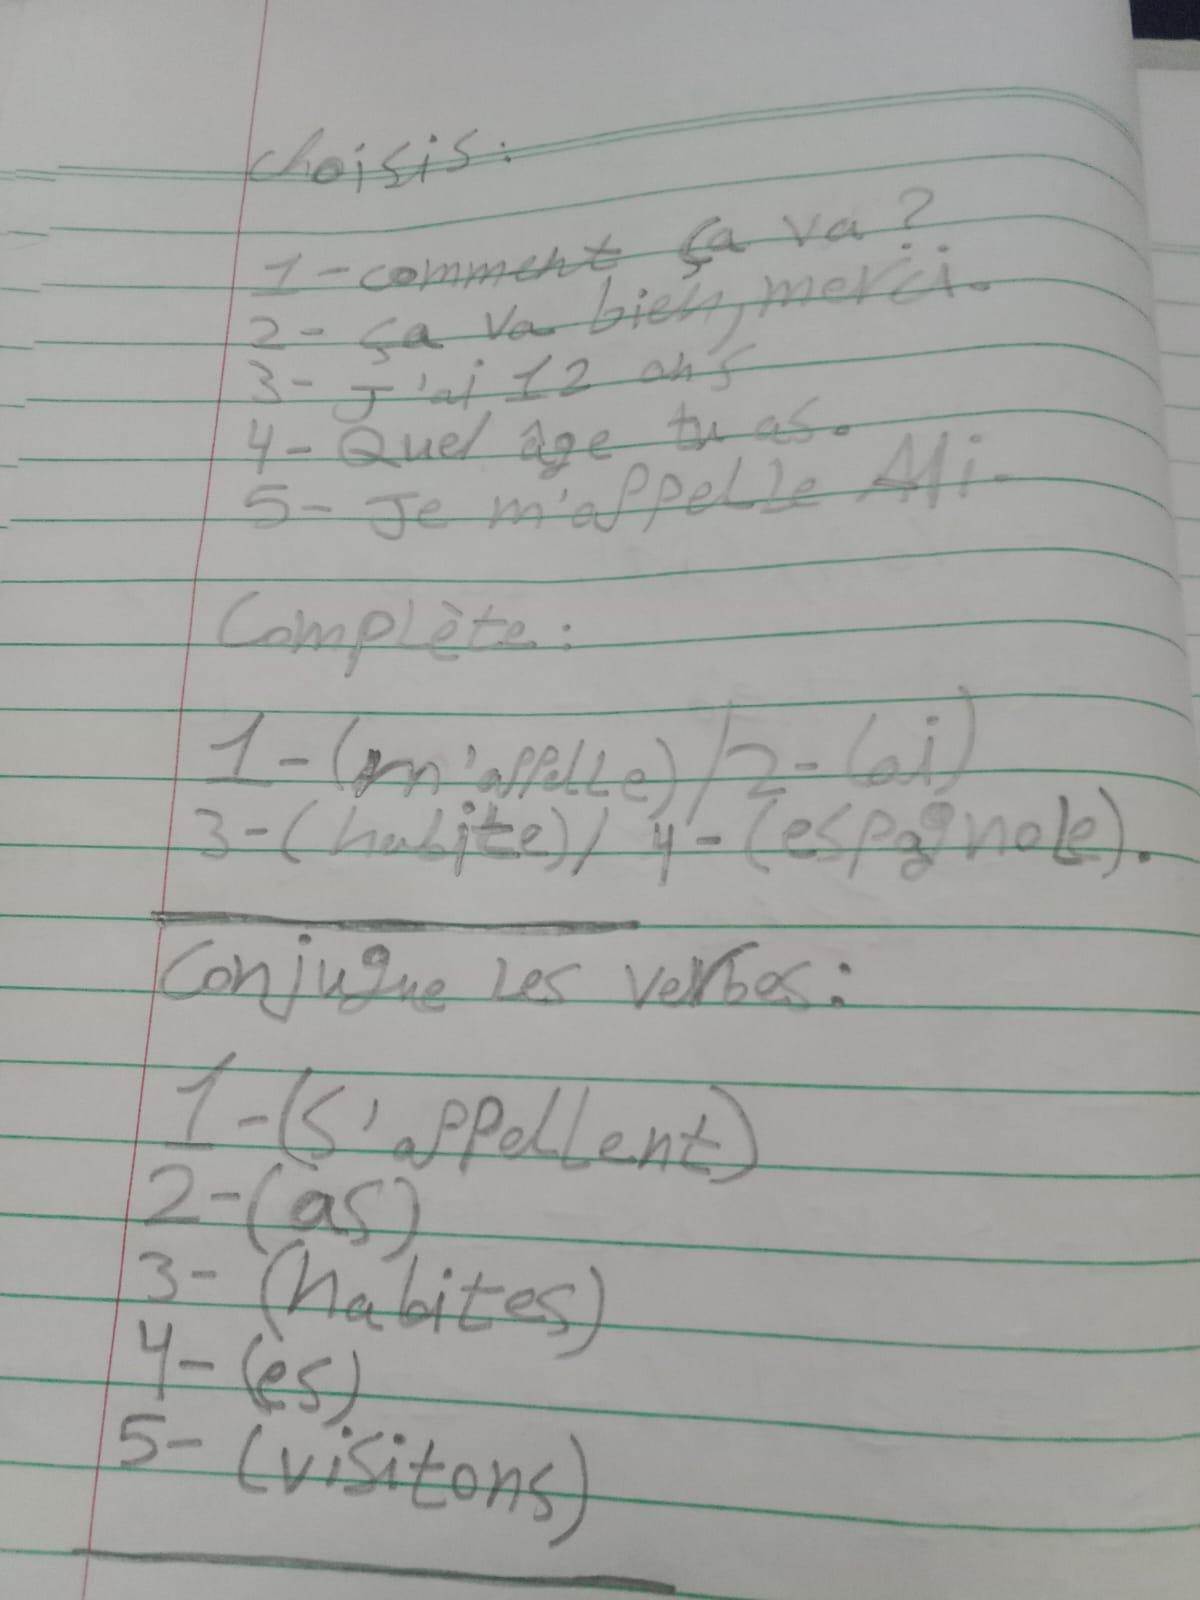 choisis:
1-comment ça va?
2- ça va bien, merci.
3- J'ai 12 ans
4- Quel âge tu as.
5- Je m'appelle Ali.
Complète:
1-(m'appelle)/2-(ai)
3-(habite)/ 4-(espagnole).
Conjugue les verbes:
1-(s'appellent)
2-(as)
3- (habites)
4-(es)
5- (visitons)